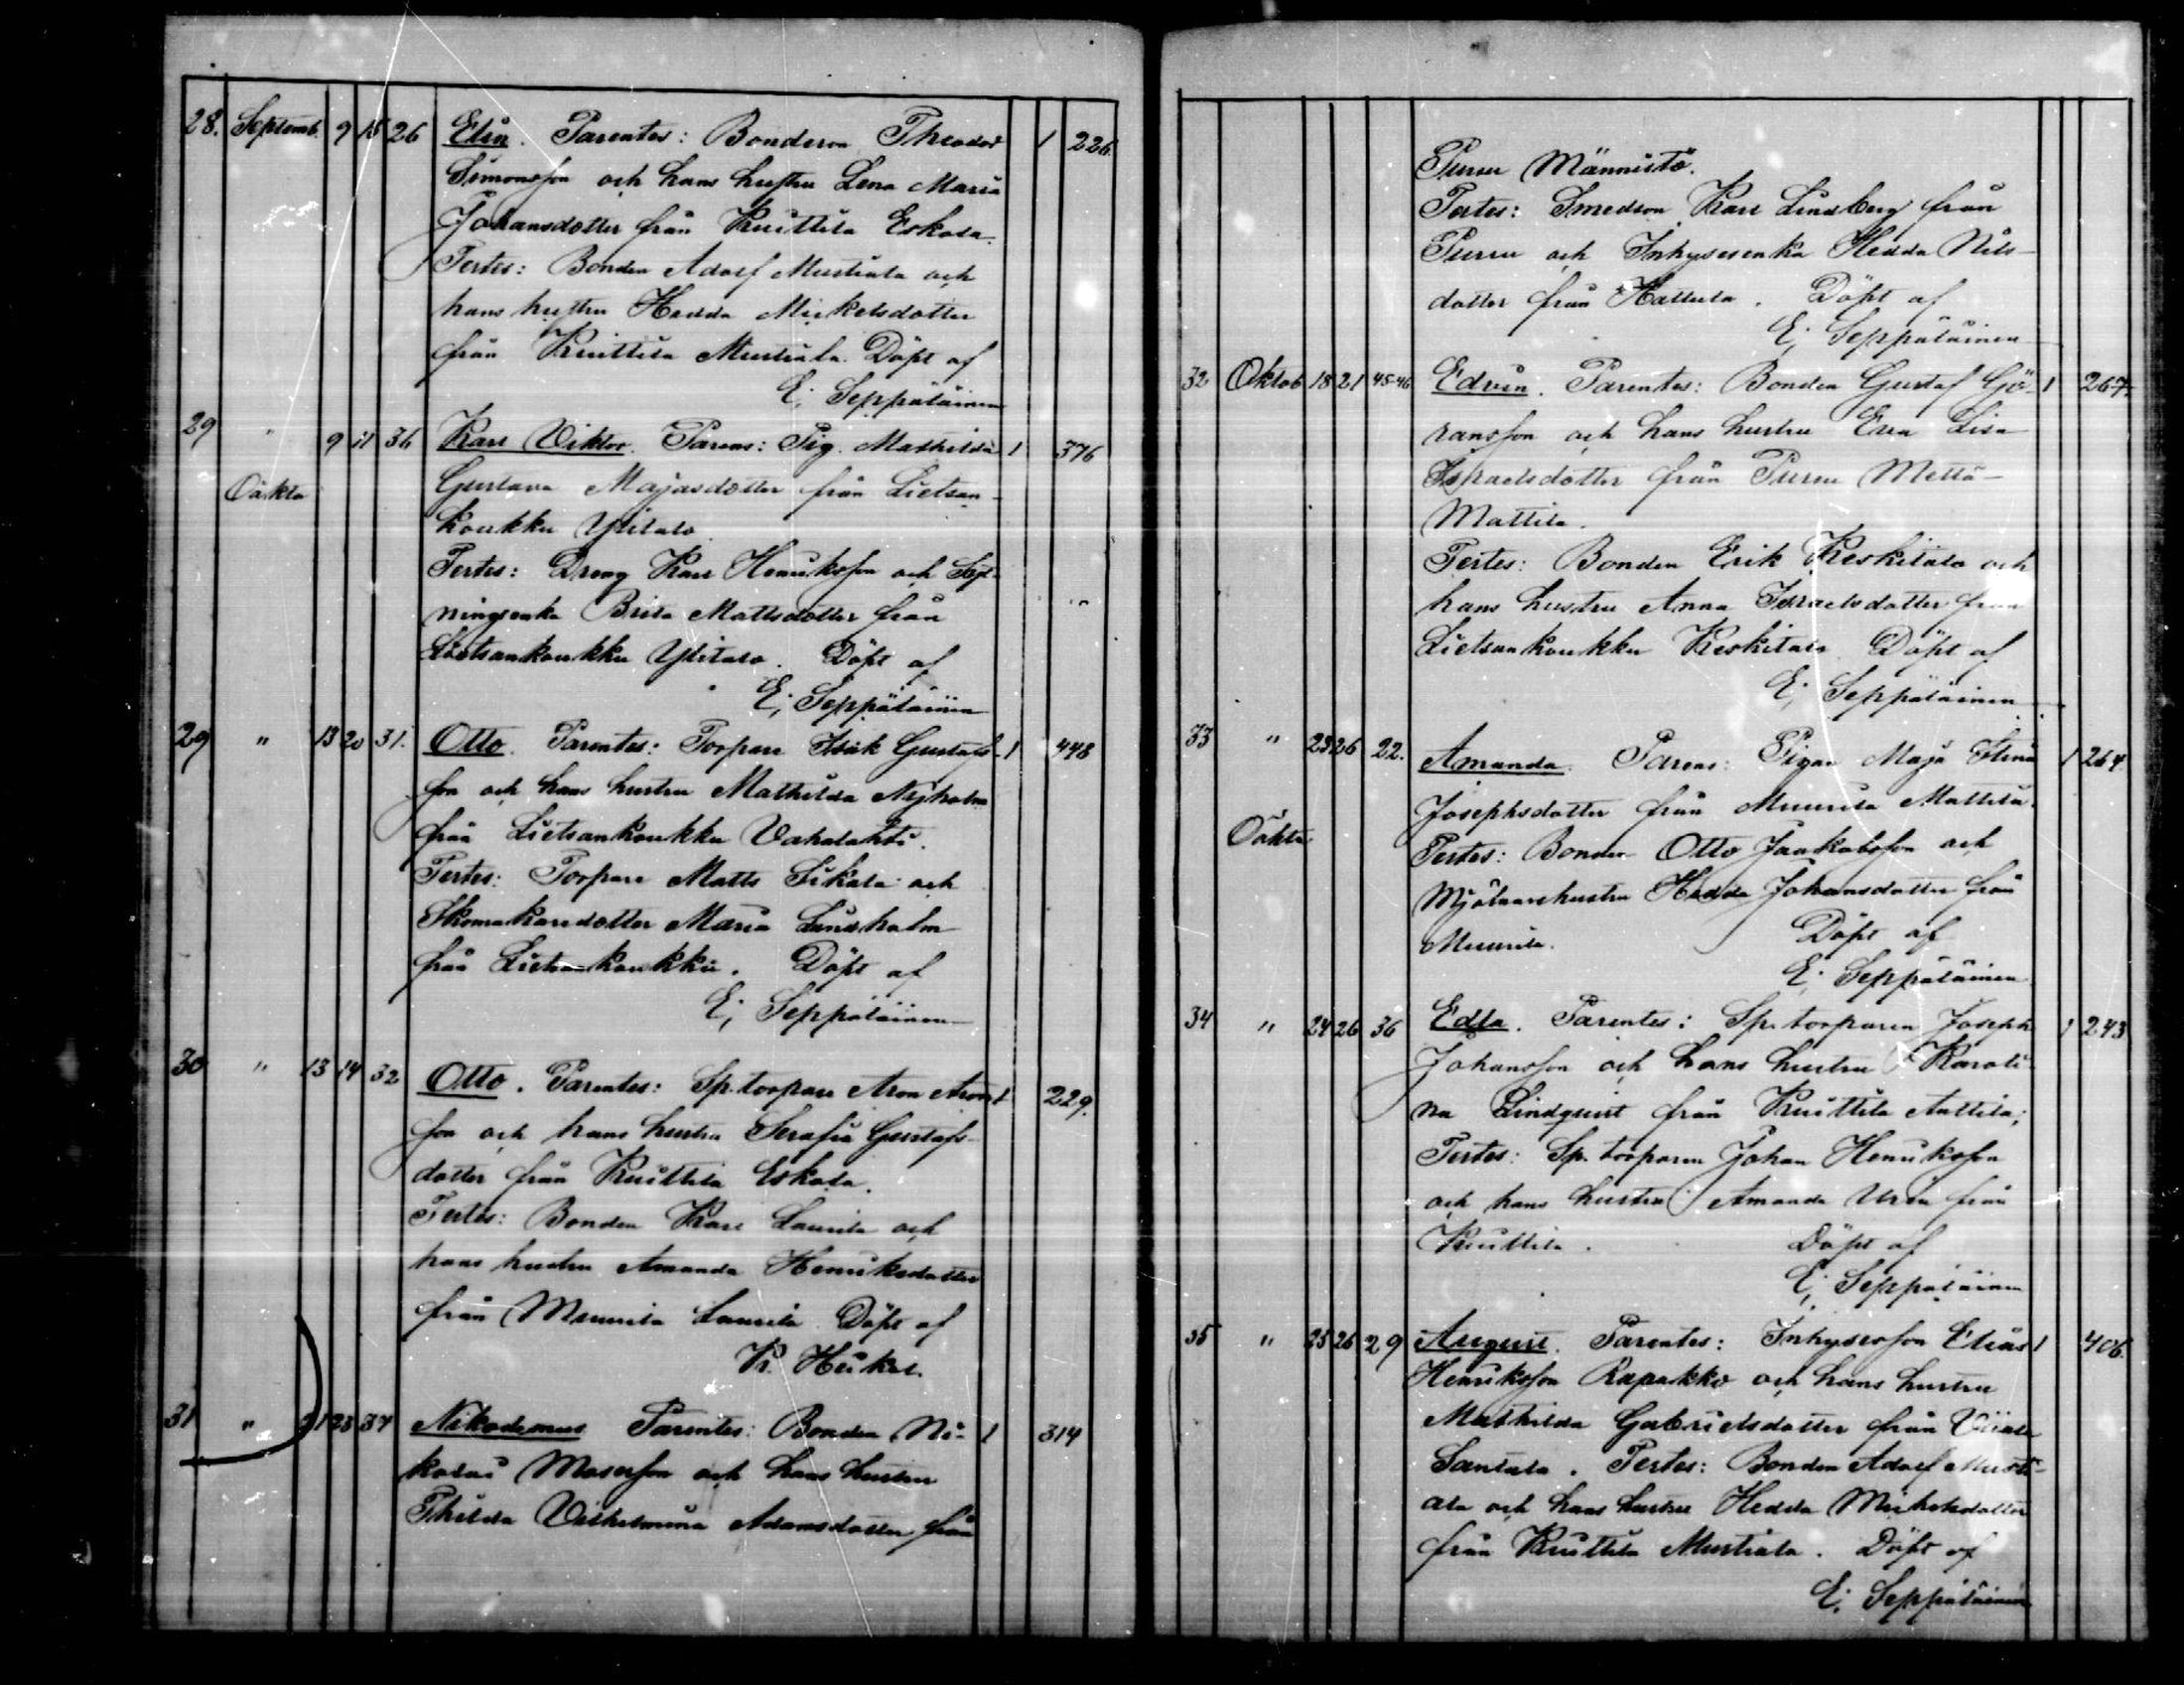 28. Septemb. 9 15 26 Elin. Parentes: Bondeson Theodor 1 226.
Simonsson och hans hustru Lena Maria
Johansdotter från Kuittila Eskola.
Testes: Bonden Adolf Mustiala och
hans hustru Hedda Mickelsdotter
från Kuittila Mustiala. Döpt af
E; Seppäläinen
29 " 9 11 36 Karl Viktor. Parens: Pig. Mathilda 1 376
Oäkta Gustava Majasdotter från Lietsan-
koukku Ylitalo
Testes: Dreng Karl Henriksson och
ningsenka Brita Mattsdotter från
Lietsankoukku Ylitalo. Döpt af
E; Seppäläinen
29 " 13 20 31. Otto. Parentes: Torpare Isak Gustafs- 1 448
son och hans hustru Mathilda Nyholm
från Lietsankoukku Vahalahti.
Testes: Torpare Matts Sikala och
Skomakaredotter Maria Lindholm
från Lietsankoukku. Döpt af
E; Seppäläinen
30 " 13 14 32 Otto. Parentes: Sp. torpare Aron Arons- 1 229.
son och hans hustru Serafia Gustafs-
dotter från Kuittila Eskola.
Testes: Bonden Karl Laurila och
hans hustru Amanda Henriksdotter
från Muurila Laurila Döpt af
K. Heikel.
31 " 21 23 34 Nikodemus Parentes: Bonden Ni- 1 314
kolai Mosesson och hans hustru
Thilda Vilhelmina Adamsdotter från
Purru Männistö.
Testes: Smedson Karl Lindberg från
Purru och Inhysesenka Hedda Nils-
dotter från Hattula. Döpt af
E; Seppäläinen
32 Oktob 18 21 45-46 Edvin. Parentes: Bonden Gustaf Gö- 1 267.
ransson och hans hustru Eva Lisa
Israelsdotter från Purru Mettä-
Mattila.
Testes: Bonden Erik Keskitalo och
hans hustru Anna Israelsdotter från
Lietsankoukku Keskitalo. Döpt af
E; Seppäläinen
33 " 23 26 22. Amanda. Parens: Pigan Maja Stina 1 264.
Josephsdotter från Muurila Mattila.
Oäkta Testes: Bonden Otto Jaakobsson och
Mjölnarehustru Hedda Johansdotter från
Muurila. Döpt af
E; Seppäläinen
34 " 24 26 36 Edla. Parentes: Sp. torparen Joseph 1 243
Johansson och hans hustru Karoli-
na Lindquist från Kuittila Anttila;
Testes: Sp. torparen Johan Henriksson
och hans hustru Amanda från
Kuittila. Döpt af
E; Seppäläinen
35 " 25 26 29 August. Parentes: Inhysesson Elias 1 406.
Henriksson Rapakko och hans hustru
Mathilda Gabrielsdotter från Viiala
Santala. Testes: Bonden Adolf Musti-
ala och hans hustru Hedda Mickelsdotter
från Kuittila Mustiala. Döpt af
E; Seppäläinen